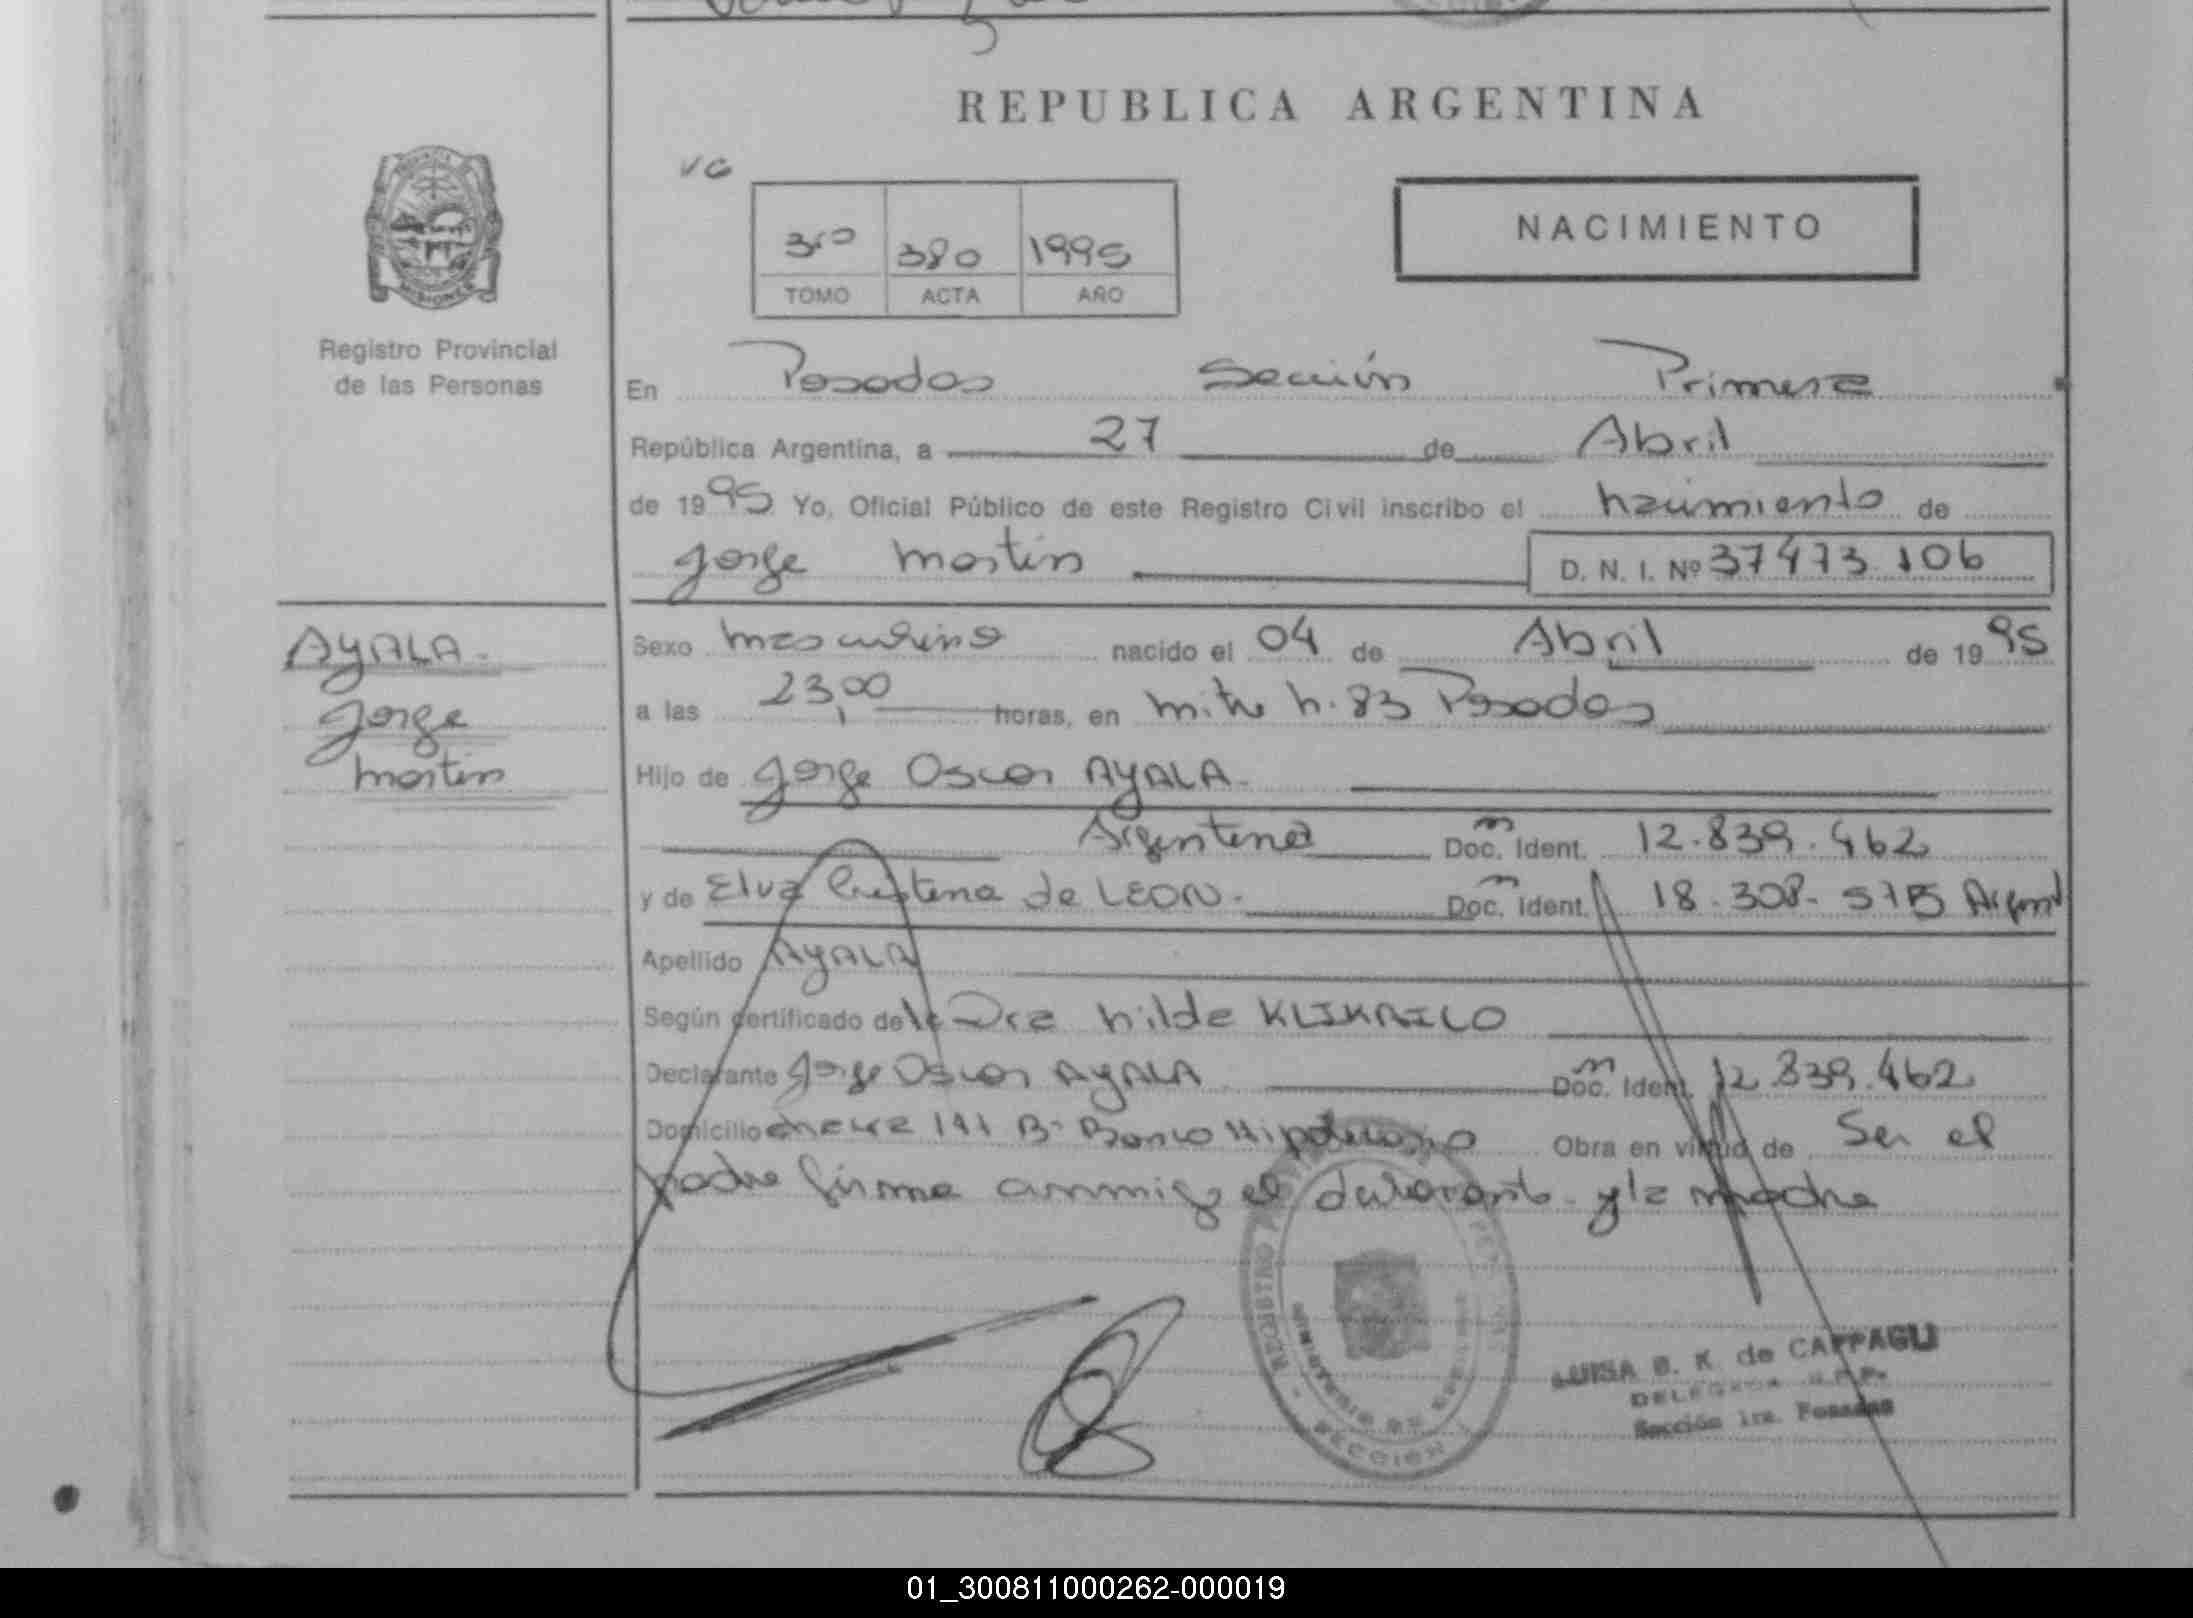 REPUBLICA ARGENTINA
VG
3ro 380 1995
TOMO ACTA AÑO
NACIMIENTO
MISIONES
Registro Provincial
de las Personas
En Posadas Sección Primera
República Argentina, a 27 de Abril
de 1995 Yo, Oficial Público de este Registro Civil inscribo el nacimiento de
Jorge Martin D. N. I. Nº 37473.106
AYALA.
Jorge
Martin
Sexo masculino nacido el 04 de Abril de 1995
a las 23,00 horas, en Mitre n. 83 Posadas
Hijo de Jorge Oscar AYALA.
Argentina Doc. Ident. 12.839.462
y de Elva Cristina de LEON. Doc. Ident. 18.308.515 Argent
Apellido AYALA
Según certificado de la Dra hilda
Declarante Jorge Oscar AYALA Doc. Ident. 12.839.462
Domicilio 141 B° Banco Hipotecario Obra en virtud de Ser el
padre firma conmigo el declarante y la madre
REGISTRO
MINISTERIO DE
SECCION
LUISA B. K. de CAPPAGLI
DELEGADA R.P.P.
Sección 1ra. Posadas
01_300811000262-000019